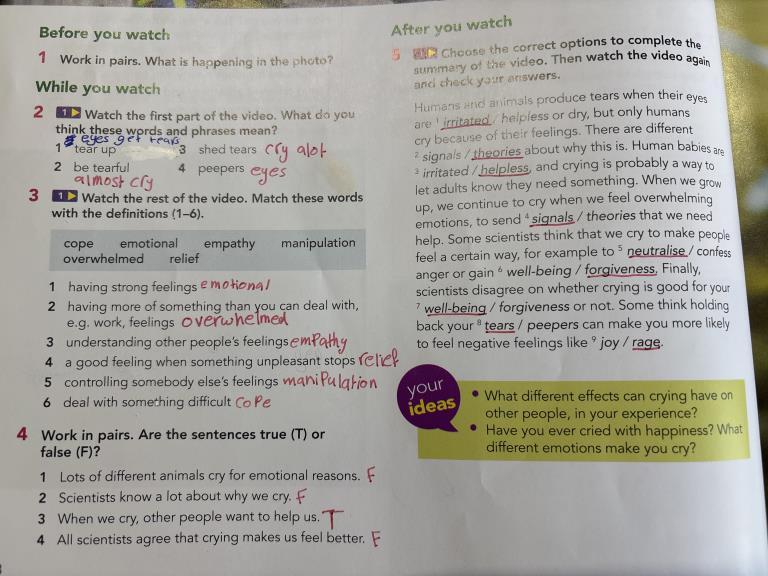 Before you watch
1 Work in pairs. What is happening in the photo?
While you watch
2 1 Watch the first part of the video. What do you
think these words and phrases mean?
eyes get tears
1 tear up 3 shed tears cry alot
2 be tearful 4 peepers eyes
almost cry
3 1 Watch the rest of the video. Match these words
with the definitions (1–6).
cope emotional empathy manipulation
overwhelmed relief
1 having strong feelings emotional
2 having more of something than you can deal with,
e.g. work, feelings overwhelmed
3 understanding other people's feelings empathy
4 a good feeling when something unpleasant stops relief
5 controlling somebody else's feelings manipulation
6 deal with something difficult cope
4 Work in pairs. Are the sentences true (T) or
false (F)?
1 Lots of different animals cry for emotional reasons. F
2 Scientists know a lot about why we cry. F
3 When we cry, other people want to help us. T
4 All scientists agree that crying makes us feel better. F
After you watch
5 Choose the correct options to complete the
summary of the video. Then watch the video again
and check your answers.
Humans and animals produce tears when their eyes
are 1 irritated / helpless or dry, but only humans
cry because of their feelings. There are different
2 signals / theories about why this is. Human babies are
3 irritated / helpless, and crying is probably a way to
let adults know they need something. When we grow
up, we continue to cry when we feel overwhelming
emotions, to send 4 signals / theories that we need
help. Some scientists think that we cry to make people
feel a certain way, for example to 5 neutralise / confess
anger or gain 6 well-being / forgiveness. Finally,
scientists disagree on whether crying is good for your
7 well-being / forgiveness or not. Some think holding
back your 8 tears / peepers can make you more likely
to feel negative feelings like 9 joy / rage.
your
ideas
• What different effects can crying have on
other people, in your experience?
• Have you ever cried with happiness? What
different emotions make you cry?